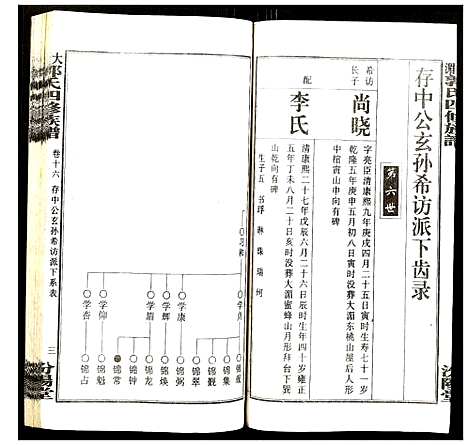 郭氏四修族谱
存中公玄孙希访派下齿录
第六世
希访
长子
尚晓
字亮臣清康熙九年庚戌四月二十五日寅时
乾隆五年庚申五月初八日寅时没葬大湄东桃山屋后人形
中棺寅山申向有碑
配
李氏
清康熙二十七年戊辰六月二十六日辰时没葬雍正
五年丁未八月二十日亥时没葬大湄蜜蜂山月形拜台下巽
山乾向有碑
生子五 书 琳 珠 瑞 珂
大
郭氏四修族谱
卷十六 存中公玄孙希访派下系表
三
汾阳堂
学康
学辉
学眉
学仰
学杏
锦集
锦观
锦翠
锦弼
锦焕
锦龙
锦钟
锦常
锦魁
锦占
汾阳堂